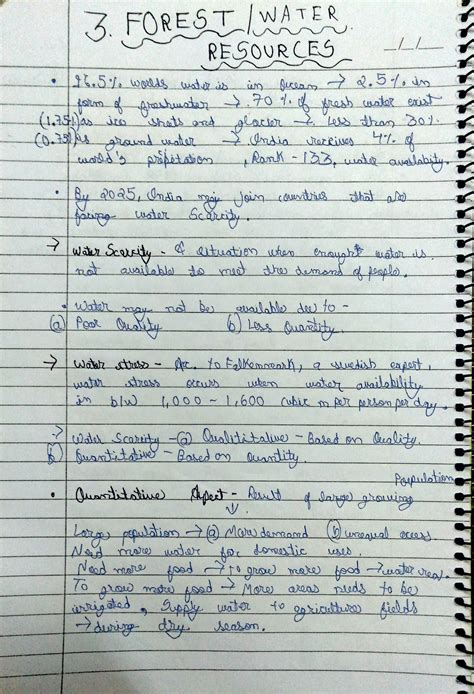 3. FOREST / WATER
RESOURCES
_/_/_
• 96.5% worlds water is in Ocean → 2.5% in
form of freshwater → 70% of fresh water exist
(1.75%) as ice shets and glacier → Less than 30%
(0.75%) is ground water → India receives 4% of
world's pripetation, Rank - 133, water availabity.
• By 2025, India may join countries that are
facing water Scarcity.
→ Water Scarcity - A situation when enough water is
not available to meet the demand of people.
• Water may not be available due to -
(a) Poor Quality b) Less Quantity.
→ Water stress - Acc. to Falkenmark, a swedish expert,
water stress occurs when water availability
in b/w 1,000 - 1,600 cubic m per person per day.
→ Water Scarcity - (a) Qualititative - Based on Quality.
(b) Quantitative - Based on Quantity.
• Quantitative Aspect - Result of large growing Population
↓
Large population → (a) More demand (b) unequal access.
Need more water for domestic uses.
Need more food → To grow more food → water
To grow more food → More areas needs to be
irrigated, Supply water to agriculture fields
→ during dry season.